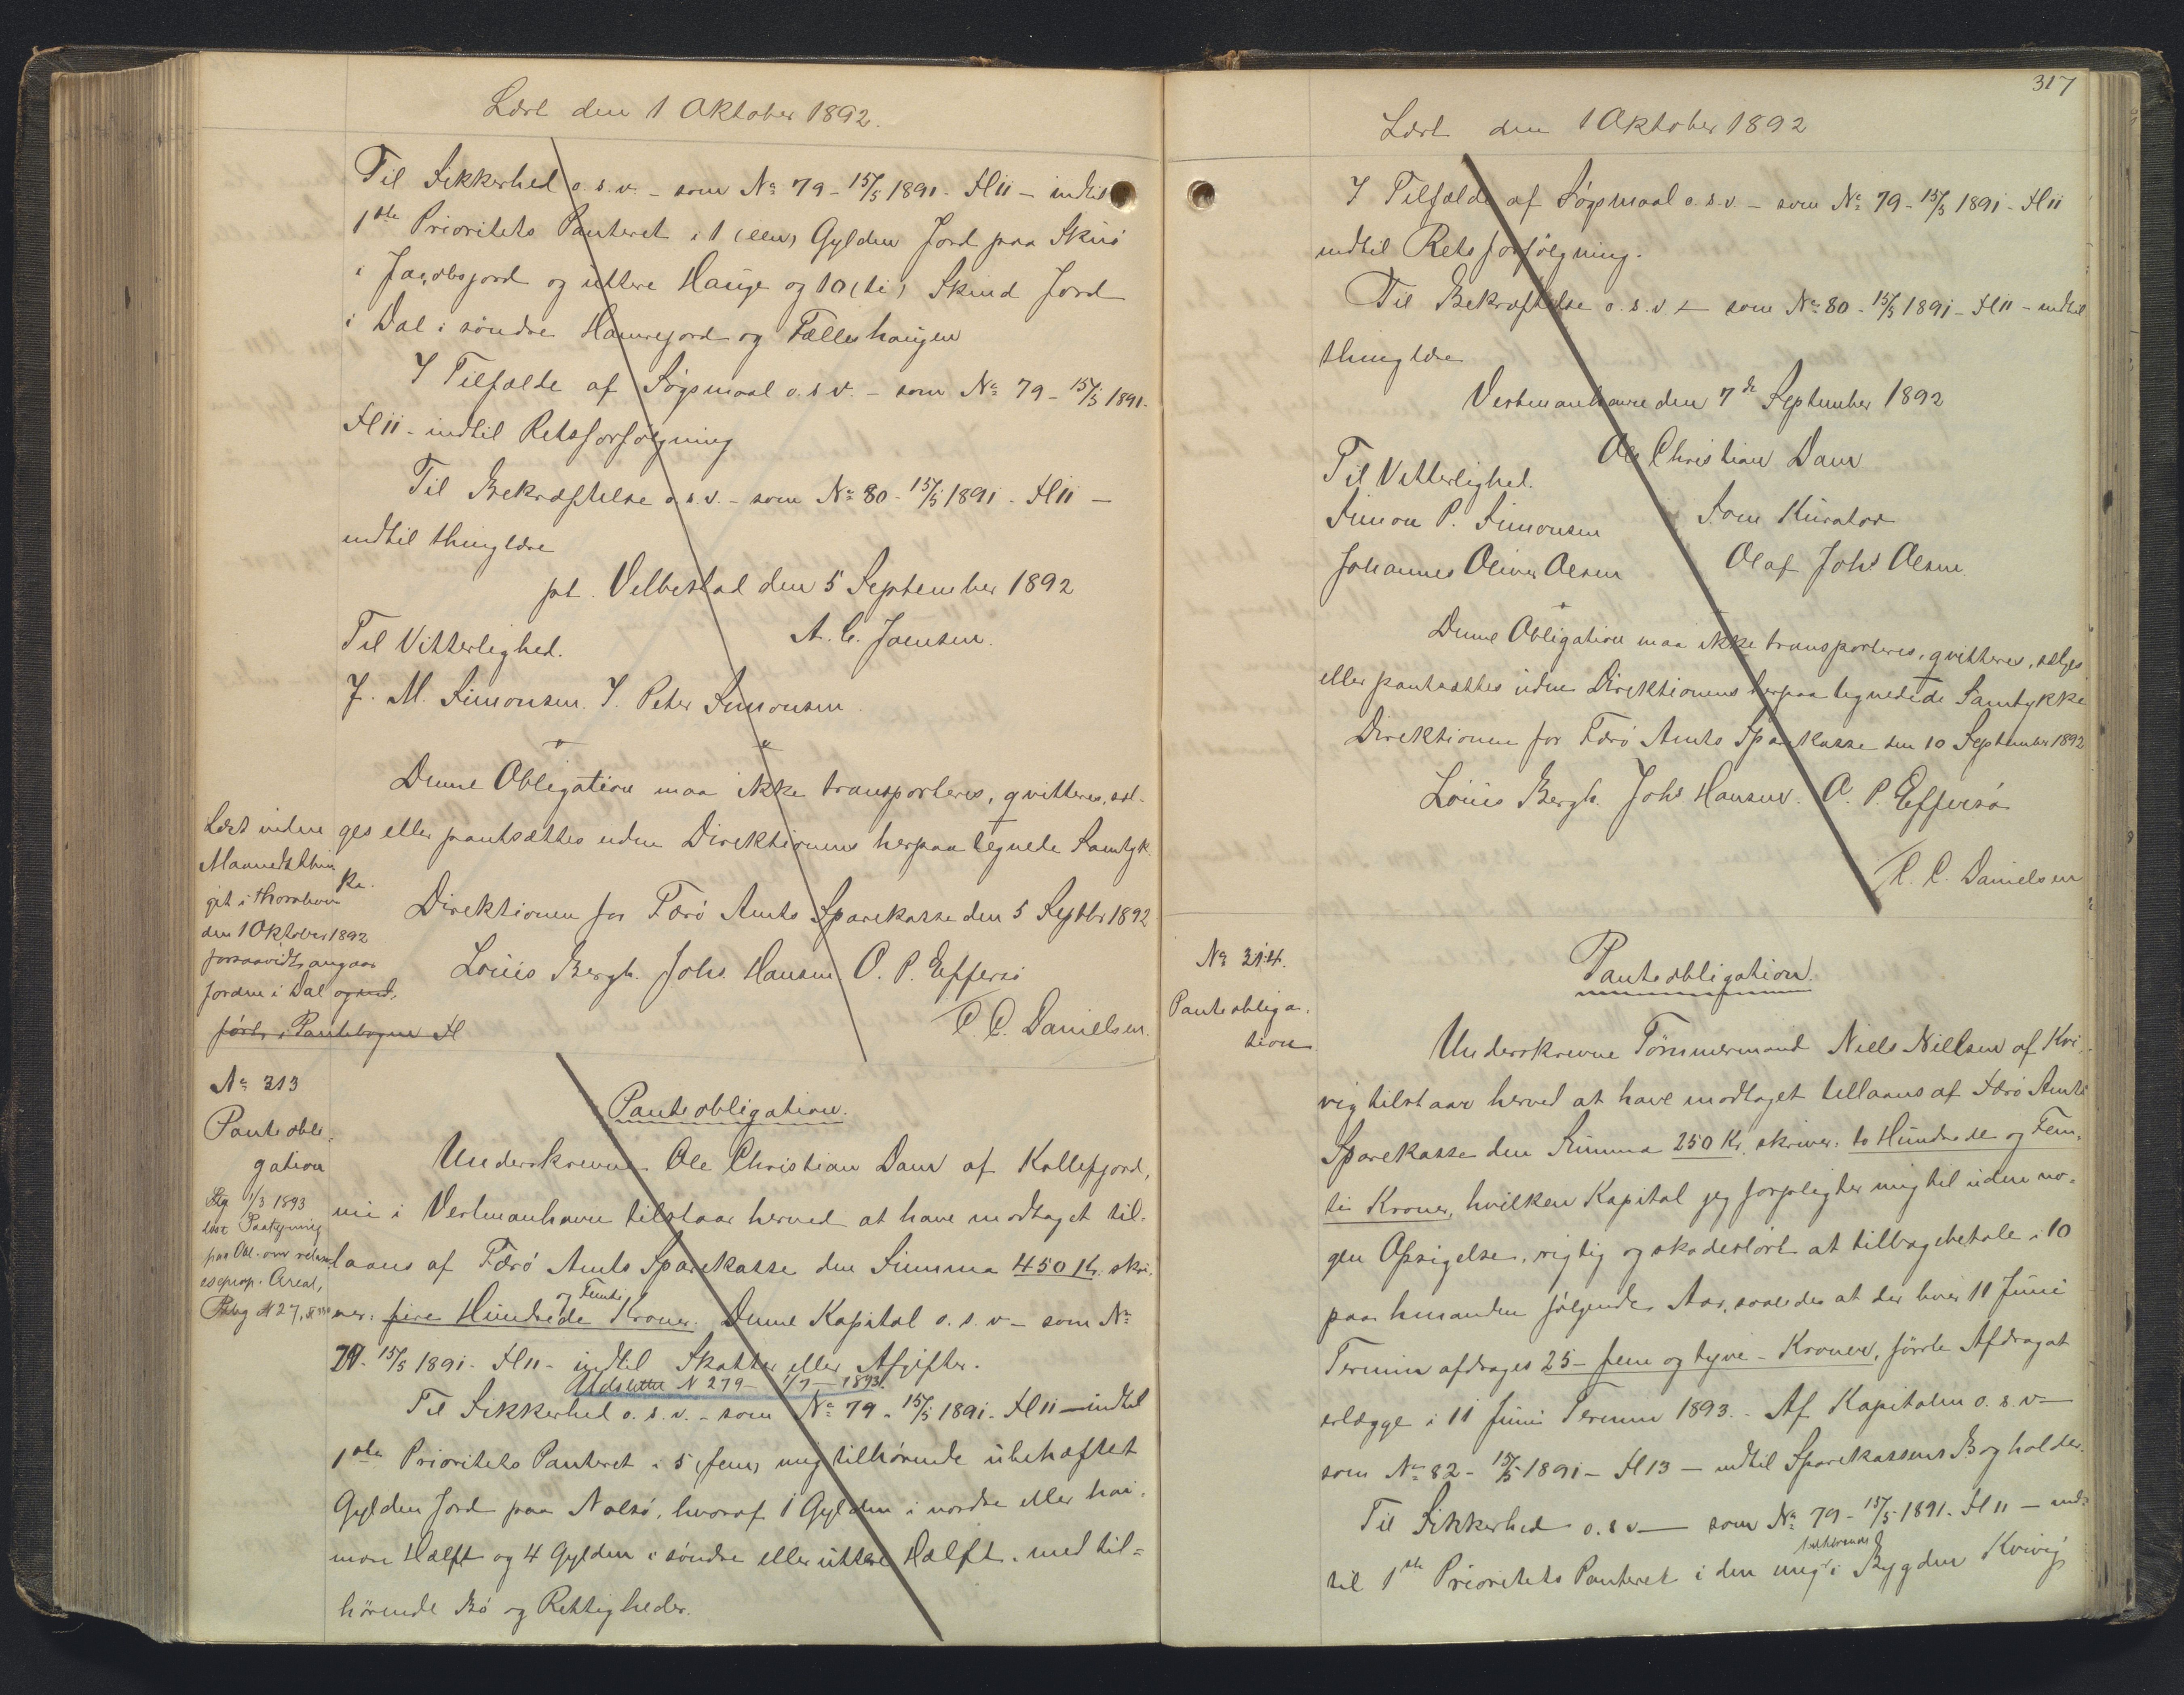 Læst den 1 Oktober 1892.
Til Sikkerhed o. s. v. - som No 79 - 15/5 1891 - Fl 11 - indtil
1ste Prioritets Panteret i 1 (een) Gylden Jord paa Skuø
i Jacobsjord og uttere Hauge og 10 (ti) Skind Jord
i Dal i søndre Hamrejord og Fælleshaugen
I Tilfælde af Søgsmaal o. s. v. - som No 79 - 15/5 1891.
Fl 11 - indtil Retsforfølgning
Til Bekræftelse o. s. v. - som No 80 - 15/5 1891 - Fl 11 -
indtil thinglæse
pt. Velbestad den 5 September 1892
Til Vitterlighed. A. C. Joensen.
J. M. Simonsen. J. Peter Simonsen.
Denne Obligation maa ikke transporteres, qvitteres, sæl-
ges eller pantsættes uden Direktionens herpaa tegnede Samtyk-
ke.
Direktionen for Færø Amts Sparekasse den 5 Septbr 1892
Louis Bergh. Johs. Hansen O. P. Effersø
/P. C. Danielsen.
Læst inden
Maanedsthin
get i Thorshavn
den 1 Oktober 1892
forsaavidt angaar
Jorden i Dal og ind-
ført i Pantebogen Fl
No 313
Panteobli-
gation
1/3 1893
læst Paategning
paa Obl. om
exprop. Areal,
Panteobligation.
Underskrevne Ole Christian Dam af Kollefjord,
nu i Vestmanhavn tilstaar herved at have modtaget til-
laans af Færø Amts Sparekasse den Summa 450 Kr. skri-
og Femti
ver: fire Hundrede Kroner. Denne Kapital o. s. v - som No
79 - 15/5 1891 - Fl 11 - indtil Skatter eller Afgifter.
Udslettet N 279 - 1/7 - 1893.
Til Sikkerhed o. s. v. - som No 79 - 15/5 1891 - Fl 11 - indtil
1ste Prioritets Panteret i 5 (fem) mig tilhørende ubehæftet
Gylden Jord paa Nolsø, hvoraf 1 Gylden i nordre eller hei-
mare Hælft og 4 Gylden i søndre eller uttere Hælft, med til-
hørende Bø og Rettigheder.
317
Læst den 1 Oktober 1892
I Tilfælde af Søgsmaal o. s. v. - som No 79 - 15/5 1891 - Fl 11
indtil Retsforfølgning.
Til Bekræftelse o. s. v - som No 80 - 15/5 1891 - Fl 11 - indtil
thinglæse
Vestmanhavn den 7de September 1892
Ole Christian Dam
Til Vitterlighed.
Simon P. Simonsen Som Kurator
Johannes Oliver Olsen Olaf Johs Olsen.
Denne Obligation maa ikke transporteres, qvitteres, sælges
eller pantsættes uden Direktionens herpaa tegnedede Samtykke
Direktionen for Færø Amts Sparekasse den 10 September 1892
Louis Bergh. Johs Hansen. O. P. Effersø
/P. C. Danielsen
No 314.
Panteobliga-
tion
Panteobligation.
Underskrevne Tømmermand Niels Nielsen af Kvi-
vig tilstaar herved at have modtaget tillaans af Færø Amts
Sparekasse den Summa 250 Kr. skriver: to Hundrede og Fem-
ti Kroner, hvilken Kapital jeg forpligter mig til uden no-
gen Opsigelse, rigtig og skadesløst at tilbagebetale i 10
paa hinanden følgende Aar, saaledes at der hver 11 Juni
Termin afdrages 25 - fem og tyve - Kroner, første Afdrag at
erlægge i 11 Juni Termin 1893. - Af Kapitalen o. s. v -
som No 82 - 15/5 1891 - Fl 13 - indtil Sparekassens Bogholder.
Til Sikkerhed o. s. v - som No 79 - 15/5 1891. Fl 11 - ind-
tilhørende
til 1ste Prioritets Panteret i den mig i Bygden Kvivig